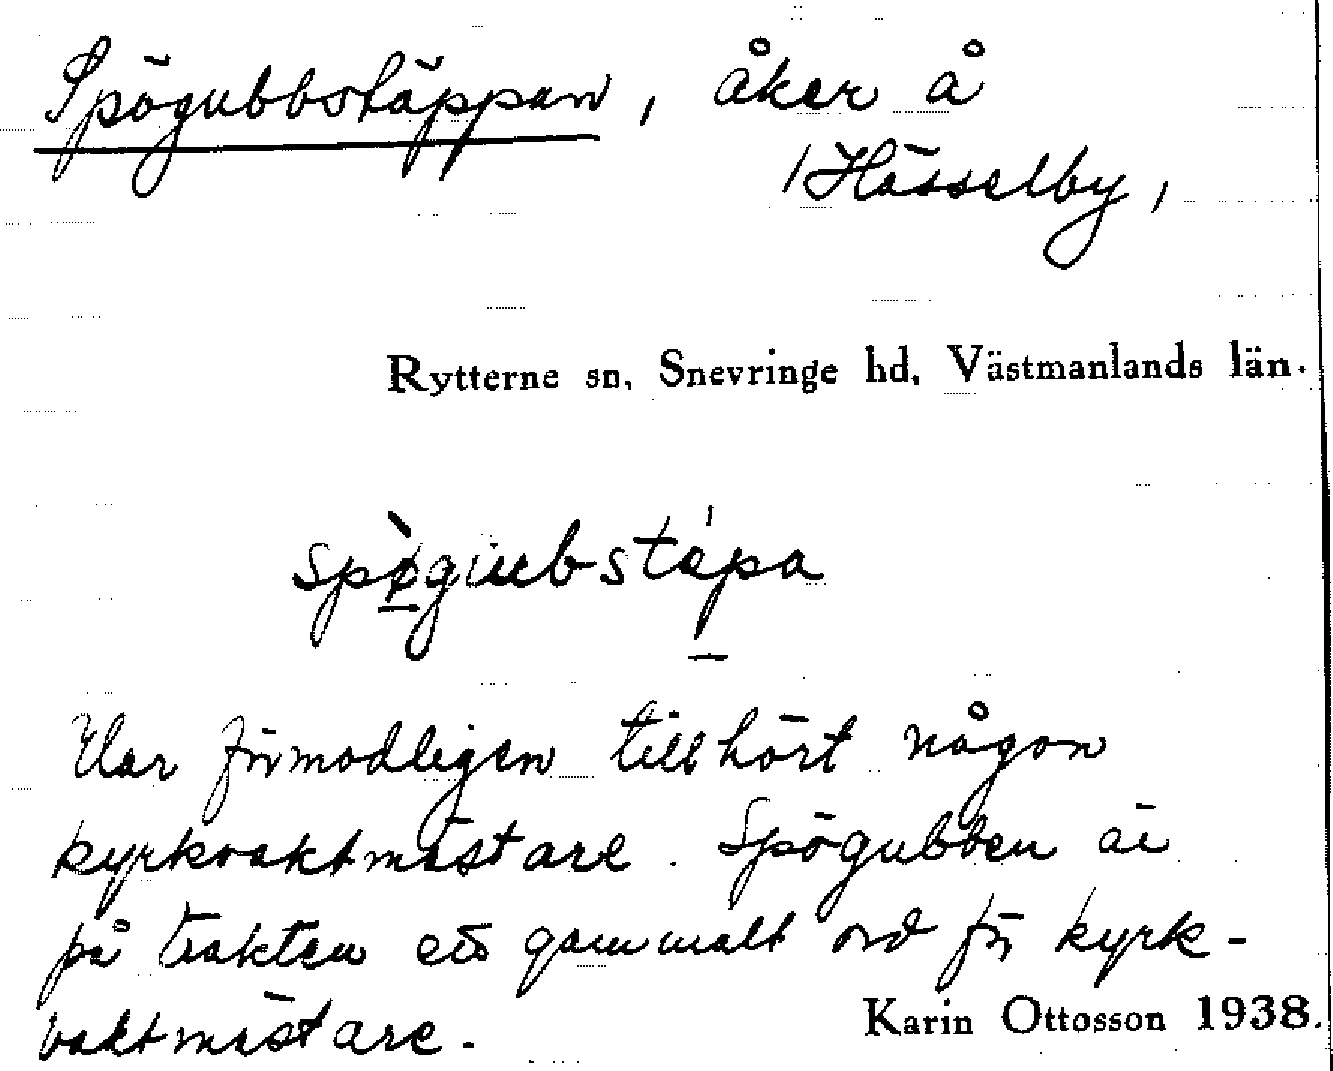 Spögubbstäppan, åker å
Hässelby,
Rytterne sn, Snevringe hd, Västmanlands län.
Har förmodligen tillhört någon
kyrkvaktmästare. Spögubben är
på trakten ett gammalt ord för kyrk-
vaktmästare.
Karin Ottosson 1938.